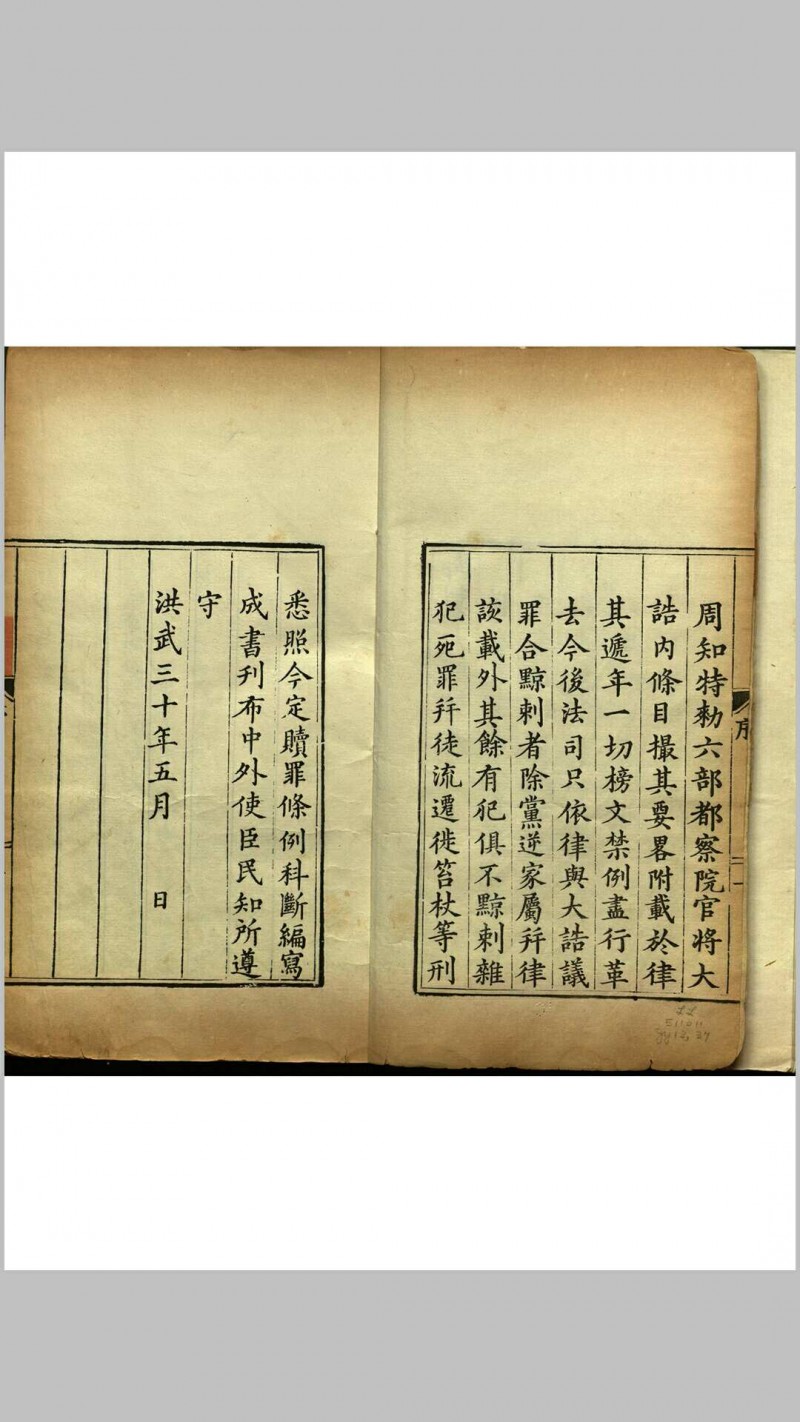 周知特勑六部都察院官將大
誥内條目撮其要畧附載於律
其遞年一切榜文禁例盡行革
去今後法司只依律與大誥議
罪合黥刺者除黨逆家屬幷律
該載外其餘有犯俱不黥刺雜
犯死罪幷徒流遷徙笞杖等刑
悉照今定贖罪條例科斷編寫
成書刋布中外使臣民知所遵
守
洪武三十年五月 日
序